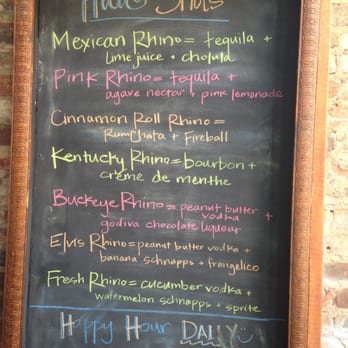 Mexican Rhino = tequila +
lime juice + cholula
Pink Rhino = tequila +
agave nectar + pink lemonade
Cinnamon Roll Rhino =
RumChata + Fireball
Kentucky Rhino = bourbon +
crème de menthe
Buckeye Rhino = peanut butter
vodka +
godiva chocolate liqueur
Elvis Rhino = peanut butter vodka +
banana schnapps + frangelico
Fresh Rhino = cucumber vodka +
watermelon schnapps + sprite
Happy Hour DAILY